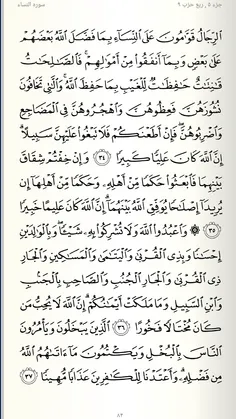 جزء ٥ , ربع حزب ٩ سورة النساء
ٱلرِّجَالُ قَوَّٰمُونَ عَلَى ٱلنِّسَآءِ بِمَا فَضَّلَ ٱللَّهُ بَعۡضَهُمۡ
عَلَىٰ بَعۡضٖ وَبِمَآ أَنفَقُواْ مِنۡ أَمۡوَٰلِهِمۡۚ فَٱلصَّٰلِحَٰتُ
قَٰنِتَٰتٌ حَٰفِظَٰتٞ لِّلۡغَيۡبِ بِمَا حَفِظَ ٱللَّهُۚ وَٱلَّٰتِي تَخَافُونَ
نُشُوزَهُنَّ فَعِظُوهُنَّ وَٱهۡجُرُوهُنَّ فِي ٱلۡمَضَاجِعِ
وَٱضۡرِبُوهُنَّۖ فَإِنۡ أَطَعۡنَكُمۡ فَلَا تَبۡغُواْ عَلَيۡهِنَّ سَبِيلًاۗ
إِنَّ ٱللَّهَ كَانَ عَلِيّٗا كَبِيرٗا ٣٤ وَإِنۡ خِفۡتُمۡ شِقَاقَ
بَيۡنِهِمَا فَٱبۡعَثُواْ حَكَمٗا مِّنۡ أَهۡلِهِۦ وَحَكَمٗا مِّنۡ أَهۡلِهَآ إِن
يُرِيدَآ إِصۡلَٰحٗا يُوَفِّقِ ٱللَّهُ بَيۡنَهُمَآۗ إِنَّ ٱللَّهَ كَانَ عَلِيمًا خَبِيرٗا
٣٥ ۞ وَٱعۡبُدُواْ ٱللَّهَ وَلَا تُشۡرِكُواْ بِهِۦ شَيۡـٔٗاۖ وَبِٱلۡوَٰلِدَيۡنِ
إِحۡسَٰنٗا وَبِذِي ٱلۡقُرۡبَىٰ وَٱلۡيَتَٰمَىٰ وَٱلۡمَسَٰكِينِ وَٱلۡجَارِ
ذِي ٱلۡقُرۡبَىٰ وَٱلۡجَارِ ٱلۡجُنُبِ وَٱلصَّاحِبِ بِٱلۡجَنۢبِ
وَٱبۡنِ ٱلسَّبِيلِ وَمَا مَلَكَتۡ أَيۡمَٰنُكُمۡۗ إِنَّ ٱللَّهَ لَا يُحِبُّ مَن
كَانَ مُخۡتَالٗا فَخُورًا ٣٦ ٱلَّذِينَ يَبۡخَلُونَ وَيَأۡمُرُونَ
ٱلنَّاسَ بِٱلۡبُخۡلِ وَيَكۡتُمُونَ مَآ ءَاتَىٰهُمُ ٱللَّهُ
مِن فَضۡلِهِۦۗ وَأَعۡتَدۡنَا لِلۡكَٰفِرِينَ عَذَابٗا مُّهِينٗا ٣٧
٨٤